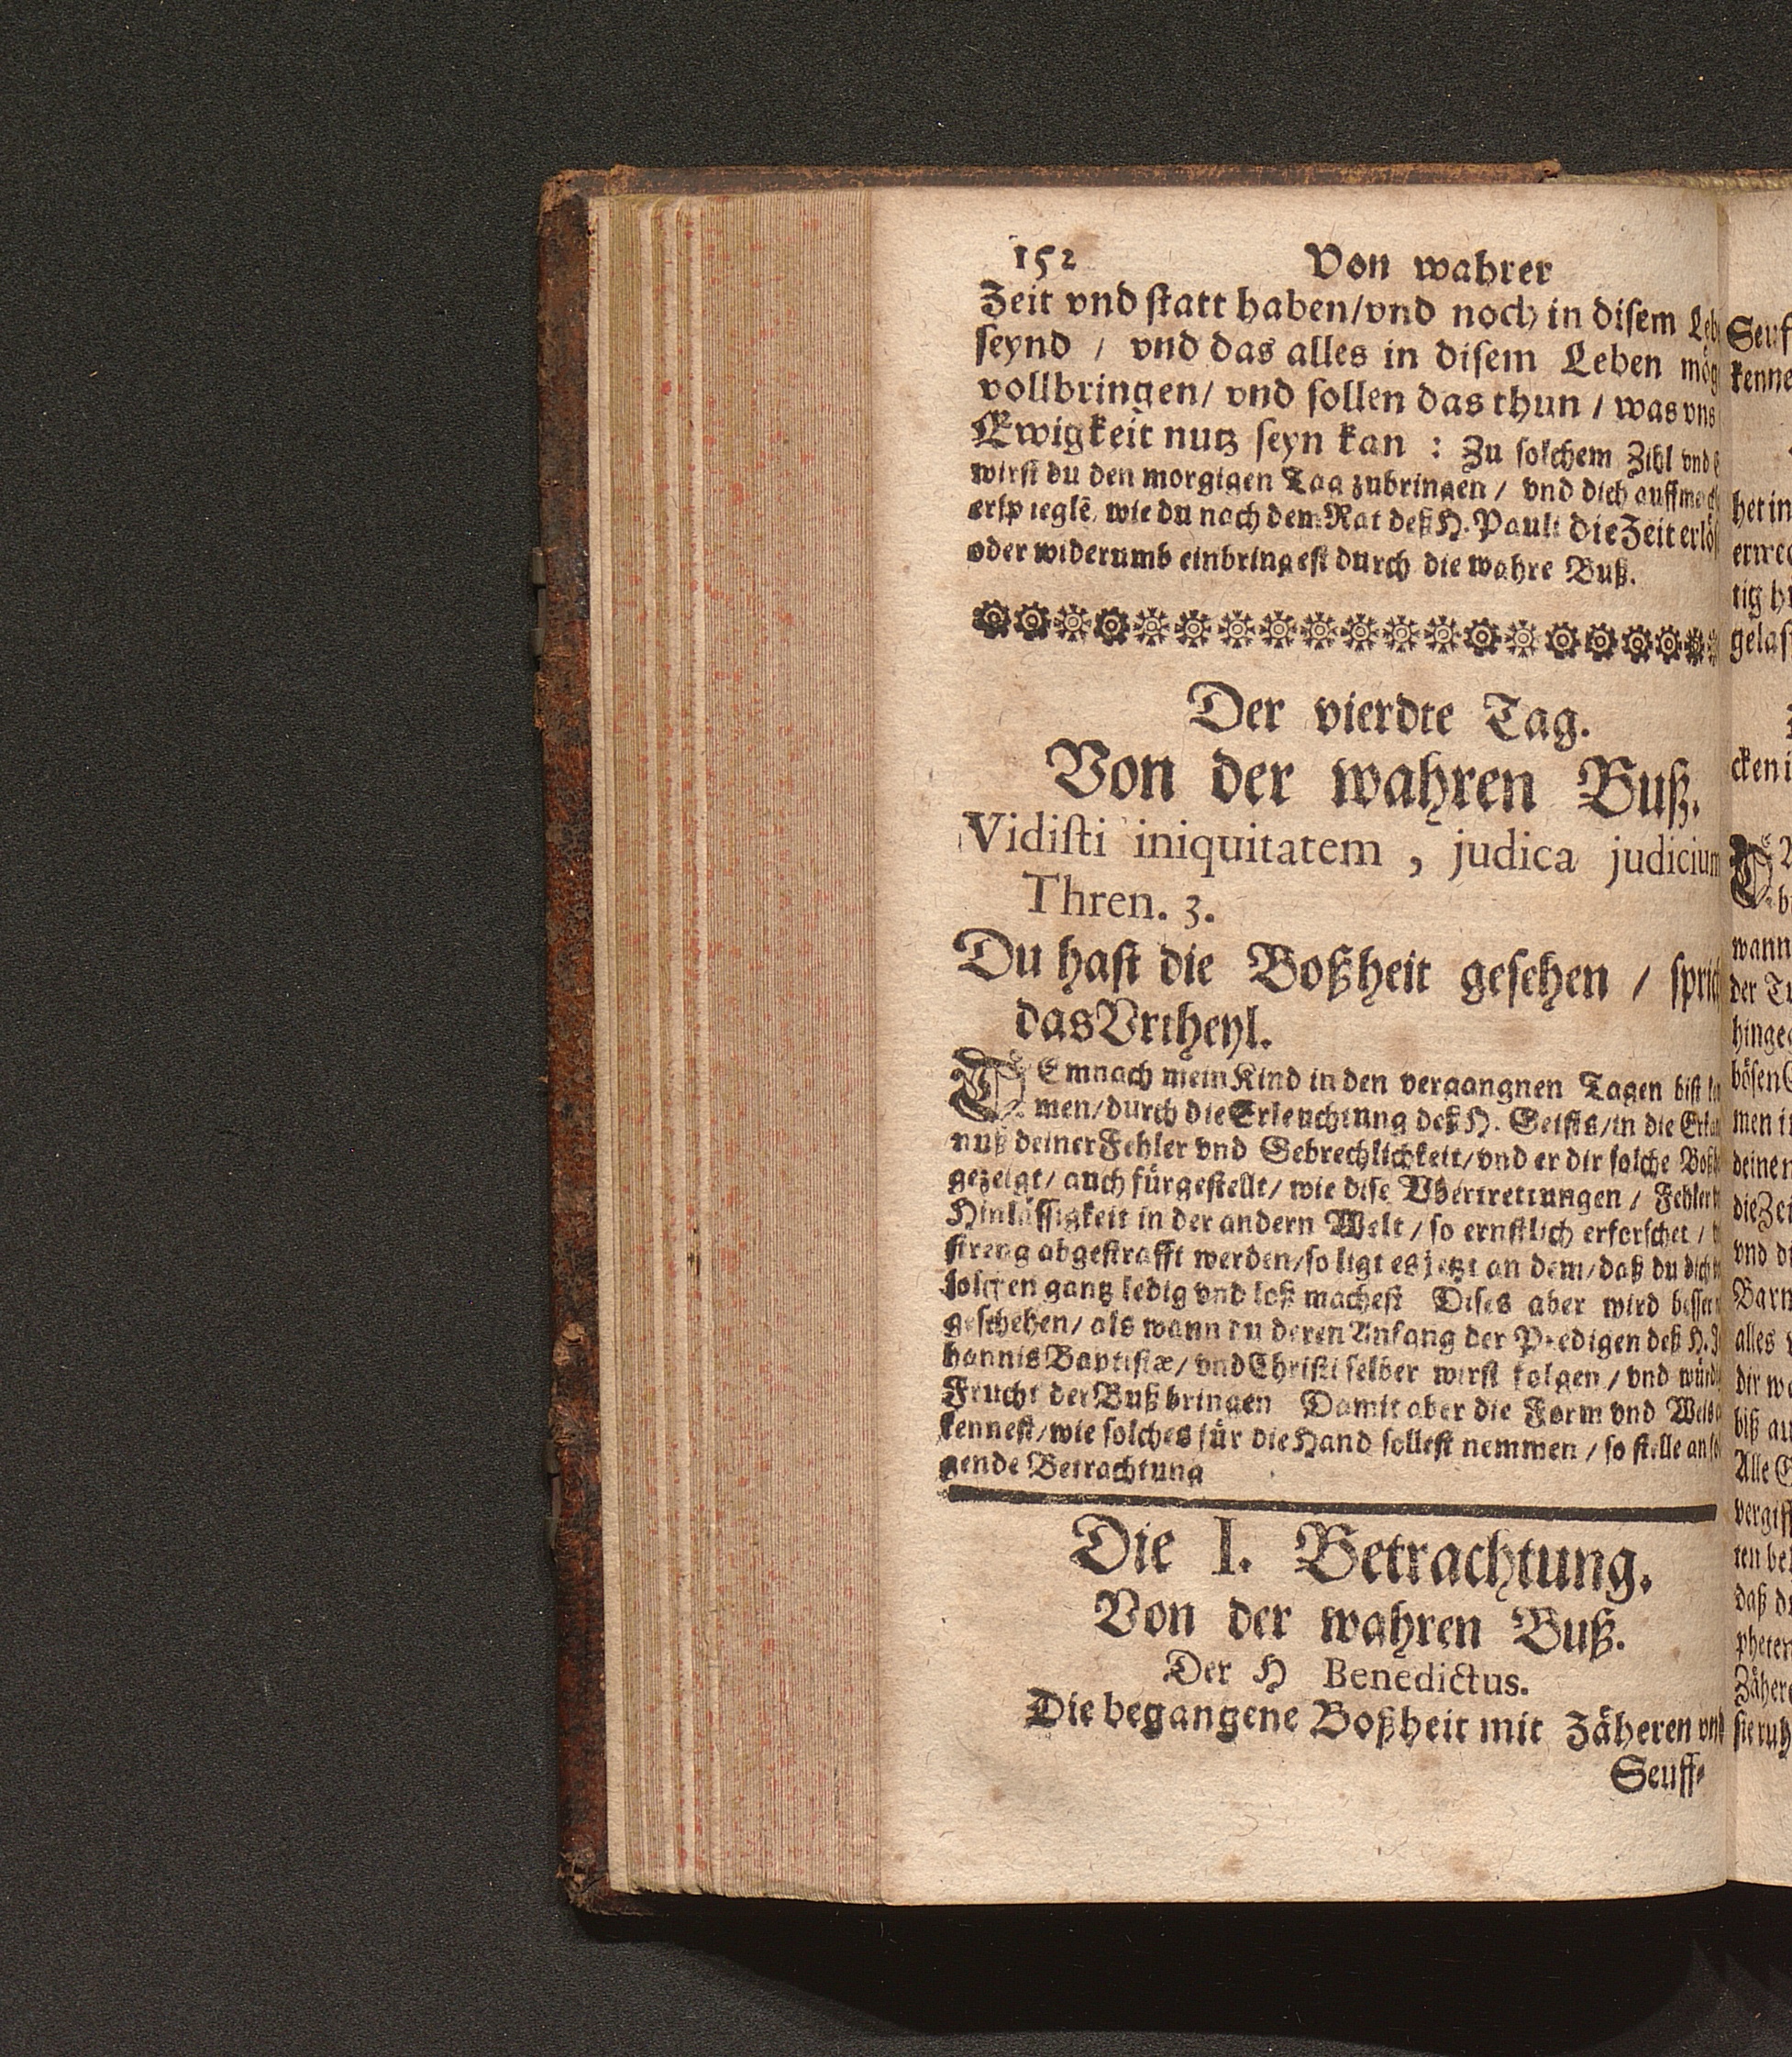 152 Von wahrer
Zeit vnd statt haben/vnd noch in disem
seynd / vnd das alles in disem Leben
vollbringen/ vnd sollen das thun / was vns
Ewigkeit nutz seyn kan : Zu solchem Zihl vnd
wirst du den morgigen Tag zubringen / vnd dich
erspieglē, wie du nach dem Rat deß H. Pauli die Zeit
oder widerumb einbringest durch die wahre Buß.
Der vierdte Tag.
Von der wahren Buß.
Vidisti iniquitatem , judica judicium
Thren. 3.
Du hast die Boßheit gesehen /
das Vrtheyl.
DEmnach mein Kind in den vergangnen Tagen bist
men/durch die Erleuchtung deß H. Geists/in die
nuß deiner Fehler vnd Gebrechlichkeit/vnd er dir solche
gezeigt/ auch fürgestellt/ wie dise Vbertrettungen / Fehler
Hinlässigkeit in der andern Welt/so ernstlich erforschet /
streng abgestrafft werden/so ligt es jetzt an dem/daß du dich
solchen gantz ledig vnd loß machest Dises aber wird besser
geschehen/ als wann du deren Anfang der Predigen deß H.
hannis Baptistæ/ vnd Christi selber wirst folgen/ vnd
Frucht der Buß bringen Damit aber die Form vnd
kennest/wie solches für die Hand sollest nemmen / so stelle an
gende Betrachtung
Die I. Betrachtung.
Von der wahren Buß.
Der H Benedictus.
Die begangene Boßheit mit Zäheren vnd
Seuff-
kenne
het in
gelas
cken i
wann
men i
deinen
alles
biß au
daß du